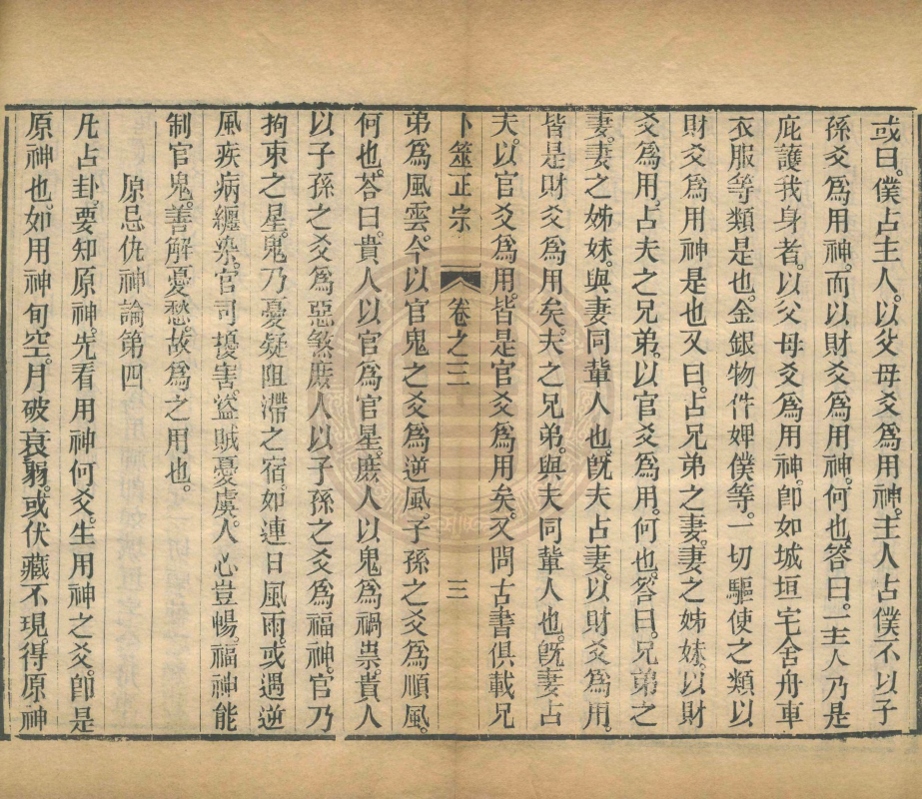 或曰。僕占主人。以父母爻爲用神。主人占僕。不以子
孫爻爲用神。而以財爻爲用神。何也。答曰。主人乃是
庇護我身者。以父母爻爲用神。卽如城垣宅舍舟車
衣服等類是也。金銀物件婢僕等。一切驅使之類以
財爻爲用神是也又曰。占兄弟之妻。妻之姊妹。以財
爻爲用。占夫之兄弟。以官爻爲用。何也。答曰。兄弟之
妻。妻之姊妹。與妻同輩人也。旣夫占妻。以財爻爲用。
皆是財爻爲用矣。夫之兄弟。與夫同輩人也。旣妻占
夫。以官爻爲用。皆是官爻爲用矣。又問古書俱載兄
卜筮正宗 卷之三 三
弟爲風雲。今以官鬼之爻爲逆風。子孫之爻爲順風。
何也。荅曰。貴人以官爲官星。庶人以鬼爲禍祟。貴人
以子孫之爻爲惡煞。庶人以子孫之爻爲福神。官乃
拘束之星。鬼乃憂疑阻滯之宿。如連日風雨。或遇逆
風疾病纏染。官司擾害。盜賊憂虞。人心豈暢。福神能
制官鬼。善解憂愁。故爲之用也。
原忌仇神論第四
凡占卦。要知原神。先看用神何爻。生用神之爻。卽是
原神也。如用神旬空。月破衰弱。或伏藏不現。得原神